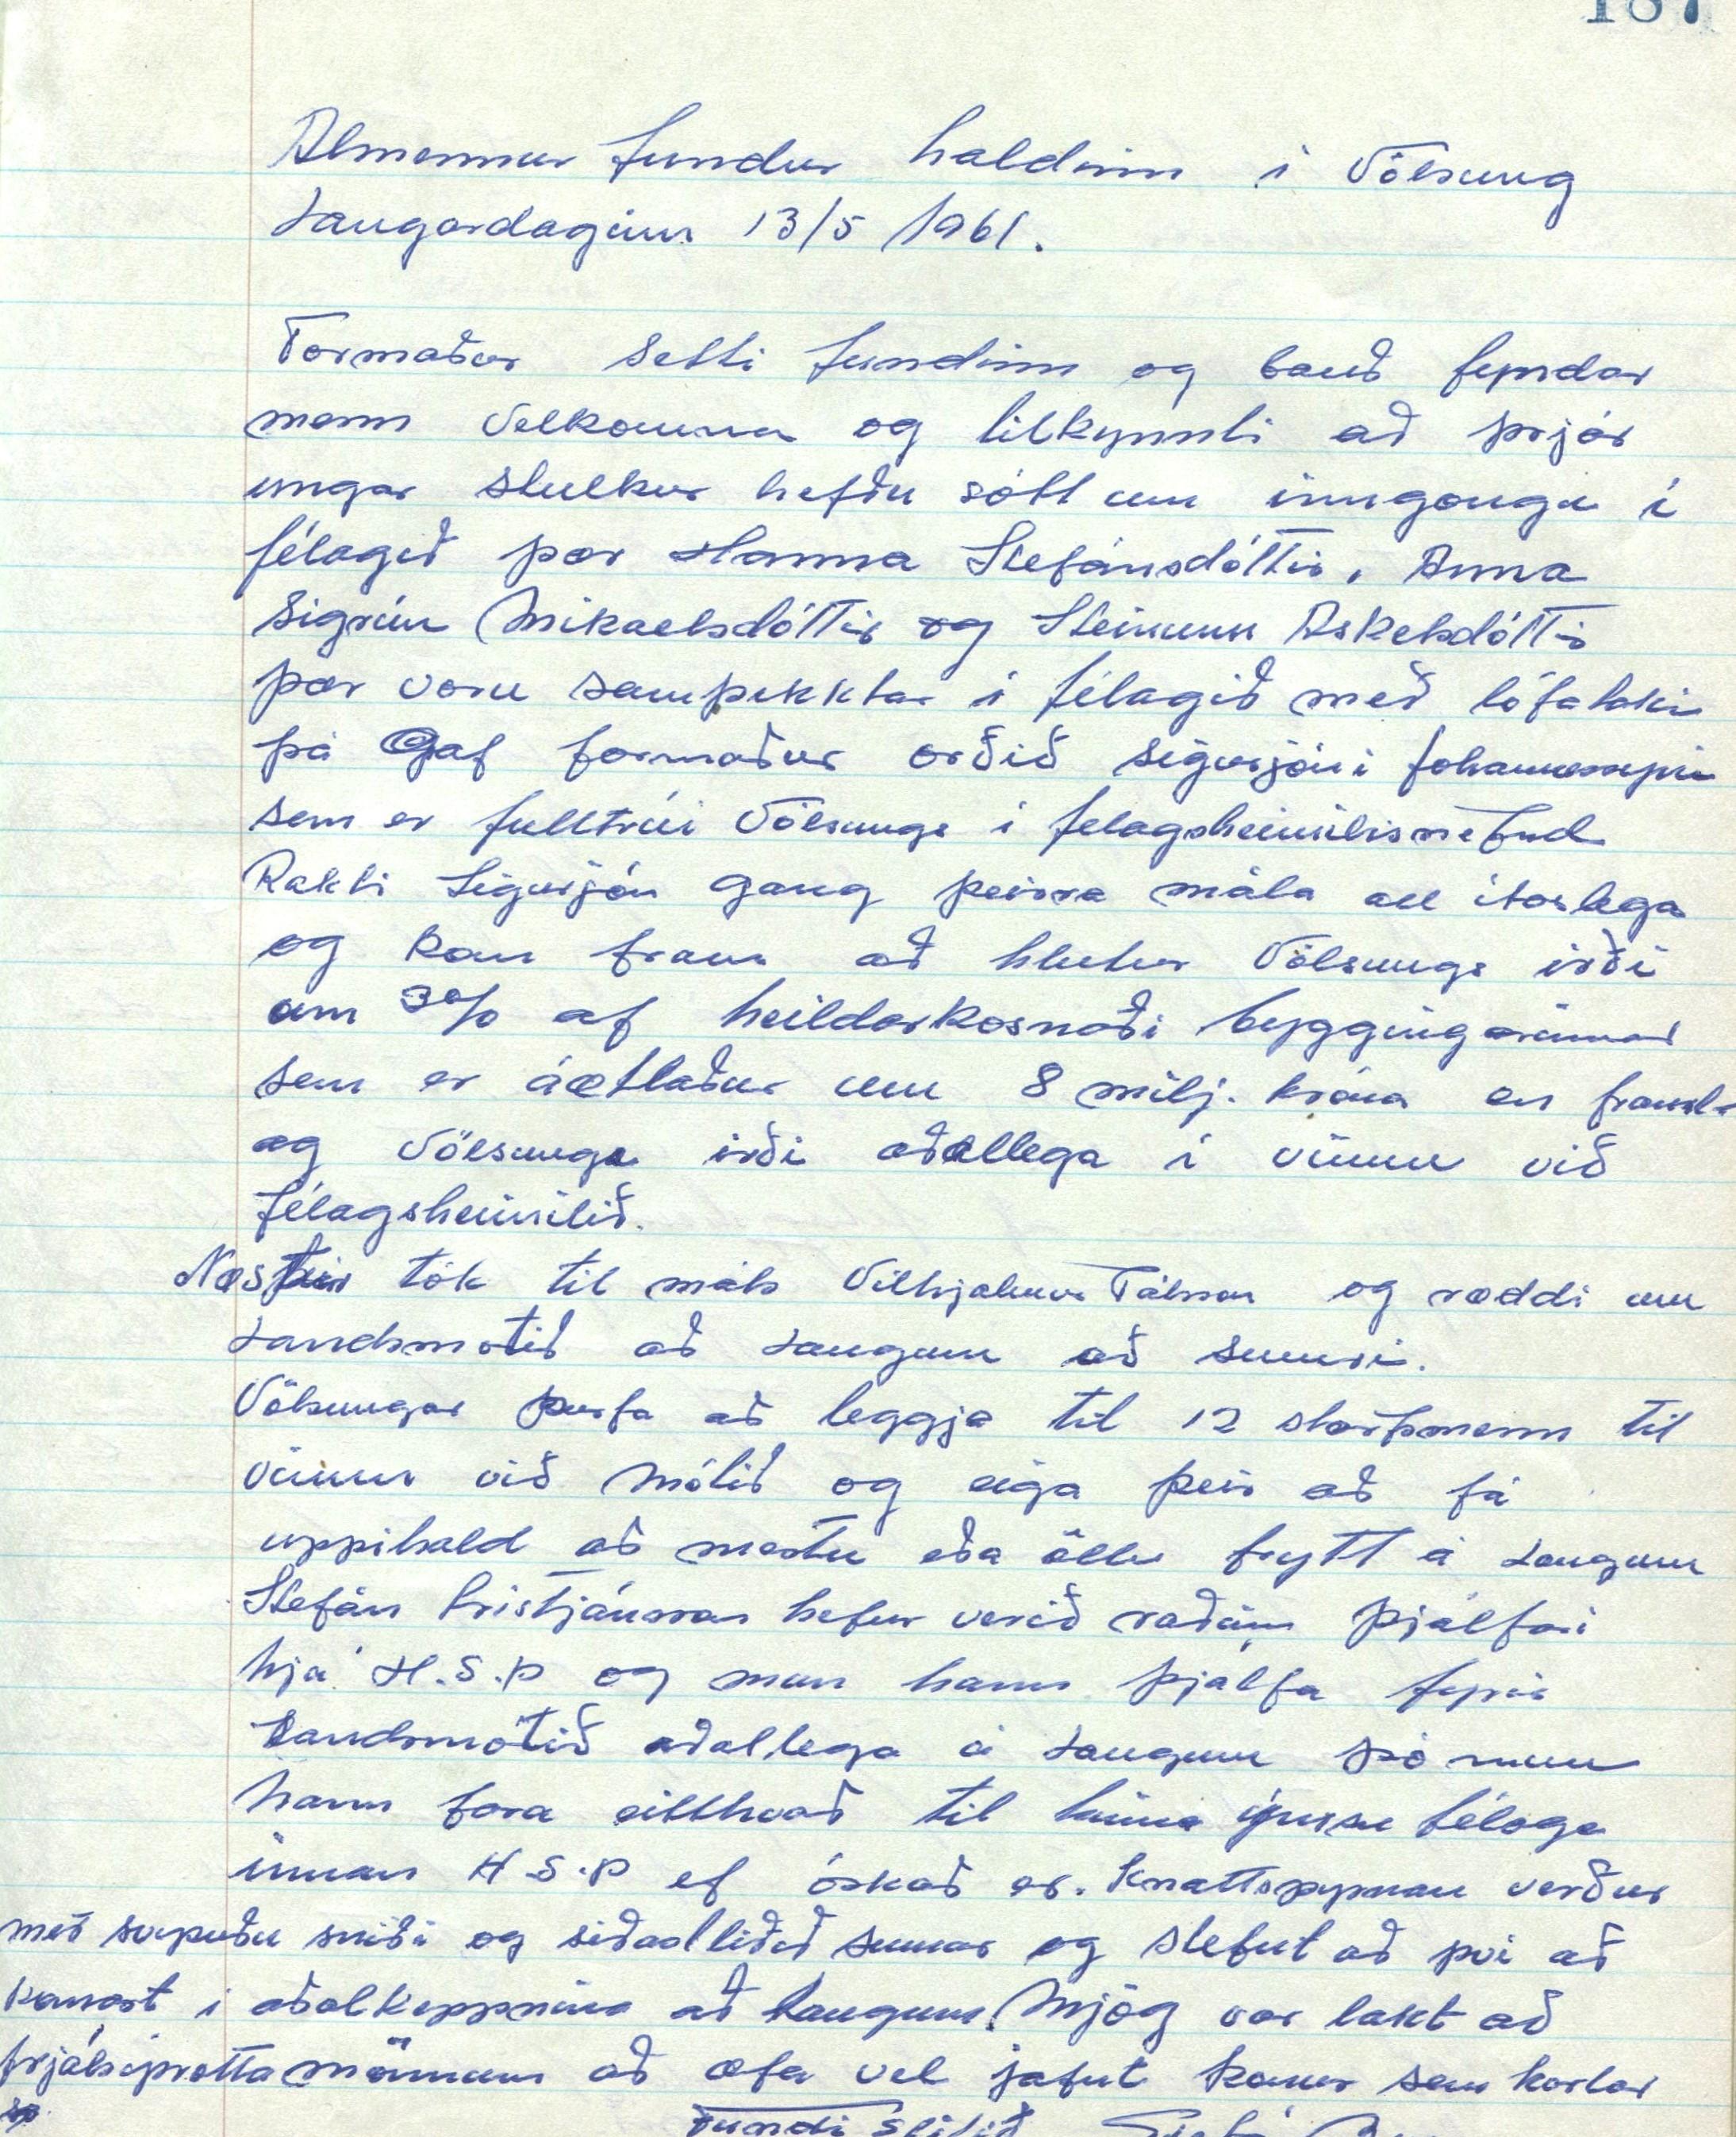 187
Almennur fundur haldinn í Völsung
Laugardaginn 13/5 1961.
Formaður setti fundinn og bauð fundar
menn velkomna og tilkynnti að þrjár
ungar stulkur hefðu sótt um inngöngu í
félagið þær Hanna Stefánsdóttir, Anna
Sigrún Mikaelsdóttir og Steinunn Áskelsdóttir
þær voru samþykktar í félagið með lófataki
þá Gaf formaður orðið Sigurjóni Johannessyni
sem er fulltrúi Völsungs í felagsheimilisnefnd
Rakti Sigurjón gang þeirra mála all ítarlega
og kom fram að hlutur Völsungs irði
um 3% af heildarkosnaði byggingarinnar
sem er áætlaður um 8 milj. króna en framl-
ag Völsungs irði aðallega í vinnu við
félagsheimilið.
Næstur tók til máls Vilhjalmur Pálsson og ræddi um
Landsmotið að Laugum að sumri.
Völsungar þurfa að leggja til 12 starfsmenn til
vinnu við Mótið og eiga þeir að fá
uppihald að mestu eða öllu frytt á Laugum
Stefán Kristjánsson hefur verið raðinn þjálfari
hjá H.S.Þ og mun hann þjálfa fyrir
Landsmótið aðallega á Laugum þó mun
hann fara eitthvað til hinna ýmsu félaga
innan H S.Þ ef óskað er. Knattspyrnan verður
með svipuðu sniði og siðastliðið sumar og stefnt að því að
komast i aðalkeppnina að Laugum. Mjög var lakt að
frjálsiþrotta mönnum að æfa vel jafnt konur sem karlar
Fundi Slitið